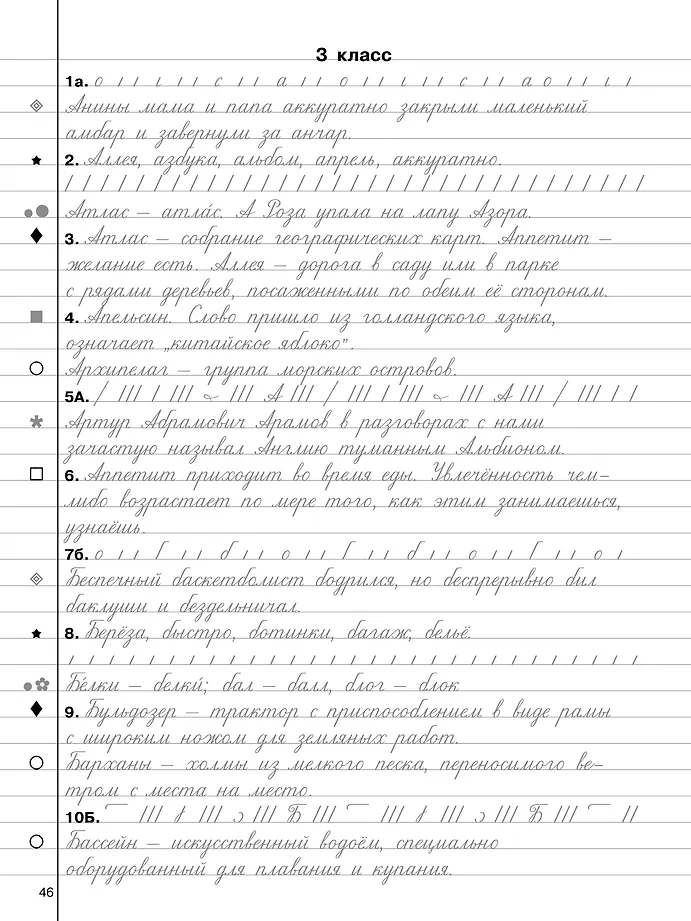 3 класс
1а. о ı ı ι ı ı с ı ı а ı ı о ı ı ι ı ı с ı ı а о ı ι ı
Анины мама и папа аккуратно закрыли маленький
амбар и завернули за анчар.
2. Аллея, азбука, альбом, апрель, аккуратно.
Атлас – атла́с. А Роза упала на лапу Азора.
3. Атлас – собрание географических карт. Аппетит –
желание есть. Аллея – дорога в саду или в парке
с рядами деревьев, посаженными по обеим её сторонам.
4. Апельсин. Слово пришло из голландского языка,
означает „китайское яблоко".
Архипелаг – группа морских островов.
5А. / /// / /// ~ /// А /// / /// / /// ~ /// А /// / /// / /
Артур Абрамович Арамов в разговорах с нами
зачастую называл Англию туманным Альбионом.
6. Аппетит приходит во время еды. Увлечённость чем-
либо возрастает по мере того, как этим занимаешься,
узнаёшь.
7б. о б о б о
Беспечный баскетболист бодрился, но беспрерывно бил
баклуши и бездельничал.
8. Берёза, быстро, ботинки, багаж, бельё.
Бе́лки – белки́; бал – балл, блог – блок
9. Бульдозер – трактор с приспособлением в виде рамы
с широким ножом для земляных работ.
Барханы – холмы из мелкого песка, переносимого ве-
тром с места на место.
10Б. Б Б
Бассейн – искусственный водоём, специально
оборудованный для плавания и купания.
46